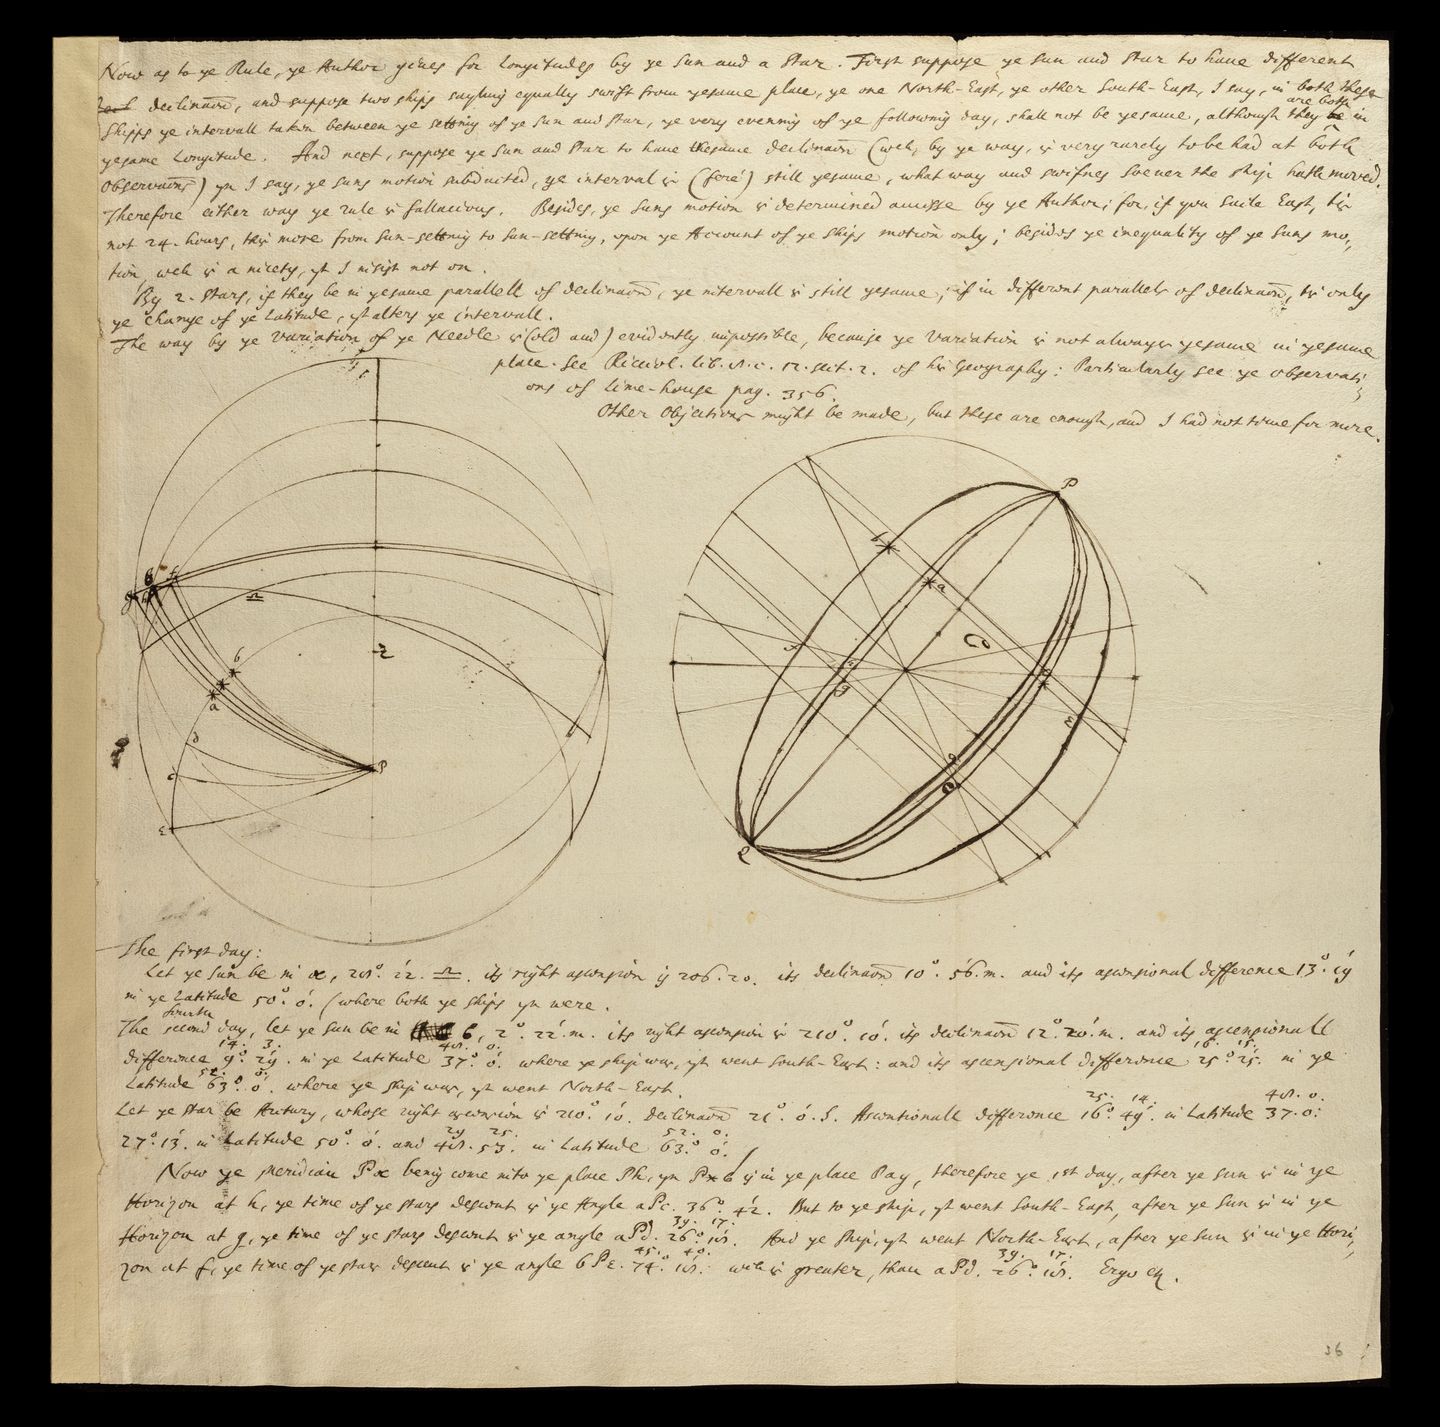 Now as to ye Rule, ye Author gives for Longitudes by ye Sun and a Star. First suppose ye Sun and Star to have different
declinaon, and suppose two ships sayling equally swift from yesame place, ye one North-East, ye other South-East, I say, in both these
are both
shipps ye intervall taken between ye setting of ye Sun and Star, ye very evening of ye following day, shall not be yesame, although they be in
yesame Longitude. And next, suppose ye Sun and Star to have thesame declinaon (wch, by ye way, is very rarely to be had at both
observaons) yn I say, ye suns motion subducted, ye interval is (feré) still yesame, what way and swifnes soever the ship hath moved.
Therefore either way ye rule is fallacious. Besides, ye suns motion is determined amisse by ye Author; for, if you saile East, tis
not 24. hours, tis more from sun-setting to sun-setting, upon ye Account of ye ships motion only; besides ye inequality of ye suns mo-
tion, wch is a nicety, yt I insist not on.
By 2. stars, if they be in yesame parallell of declinaon, ye intervall is still yesame; if in different parallels of declinaon, tis only
ye change of ye Latitude, yt alters ye intervall.
The way by ye variation of ye Needle is (old and) evidently impossible, because ye variation is not always yesame in yesame
place. See Ricciol. lib. 8. c. 12. sect. 2. of his Geography: Particularly see ye observati-
ons of Lime-house pag. 356.
Other Objections might be made, but these are enough, and I had not time for more.
P
a
P
a
b
d
c
ε
g
h
f
♎
The first day:
Let ye sun be in α, 28°. 22'. ♎. its right ascension is 206. 20. its declinaon 10°. 56'. m. and its ascensional difference 13°. 19'
in ye Latitude 50°. 0'. (where both ye ships yn were.
fourth
The second day, let ye sun be in 6, 2°. 22'. m. its right ascension is 210°. 10'. its declinaon 12°. 20'. m. and its ascensionall
14. 3. 48. 0. 16. 15.
difference 9°. 29'. in ye Latitude 37°. 0'. where ye ship was, yt went South-East: and its ascensional difference 25°. 25'. in ye
52. 0.
Latitude 63°. 0'. where ye ship was, yt went North-East.
25. 14. 48. 0.
Let ye star be Arctury, whose right ascension is 210°. 10'. declinaon 21°. 0'. S. Ascentionall difference 16°. 49'. in Latitude 37. 0.
29 25. 52. 0.
27°. 13'. in Latitude 50°. 0'. and 48. 53. in Latitude 63°. 0'.
Now ye meridian Pα being come into ye place Ph, yn P 6 is in ye place Pay, therefore ye 1st day, after ye sun is in ye
Horizon at h, ye time of ye stars descent is ye Angle aPc. 36°. 42'. But to ye ship, yt went South-East, after ye sun is in ye
39. 17.
Horizon at g, ye time of ye stars descent is ye angle aPd. 26°. 18'. And ye ship, yt went North-East, after ye sun is in ye Hori-
45. 40. 39. 17.
zon at f, ye time of ye stars descent is ye angle 6Pε. 74°. 18'. wch is greater, than aPd. 26°. 18'. Ergo &c.
36